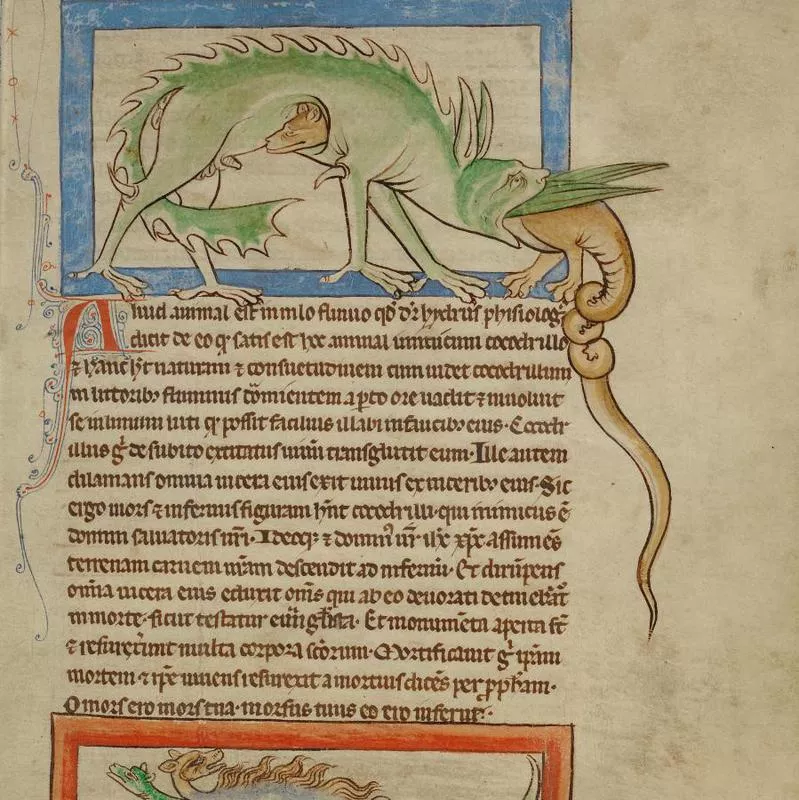 Aliud animal est in nilo flumine qd' dr hydrus phisiolog'
dicit de eo qr satis est hoc animal inimicum cocodrillo
⁊ hanc ht naturam ⁊ consuetudinem cum uidet cocodrillum
in littorib' fluminis dormientem aperto ore uadit ⁊ inuoluit
se in limum luti qr possit facilius illabi in faucib' eius. Cocodr
illus g' de subito excitatus uiuum transglutit eum. Ille autem
dilanians omnia uiscera eius exit uiuus ex uiscerib' eius. Sic
ergo mors ⁊ infernus figuram hnt cocodrilli. qui inimicus ē
domini saluatoris nri. Ideoq; ⁊ domin' nr ihc xpc assumēs
terrenam carnem nram descendit ad infernū. Et dirūpens
omia uiscera eius eduxit omēs qui ab eo deuorati detinebāt
in morte. sicut testatur euūgelista. Et monumēta aperta st
⁊ resurexerunt multa corpora scorum. Mortificauit g' ipsam
mortem ⁊ ipse uiuens resurexit a mortuis dicēs per ppham.
O mors ero mors tua. morsus tuus ero inferne.